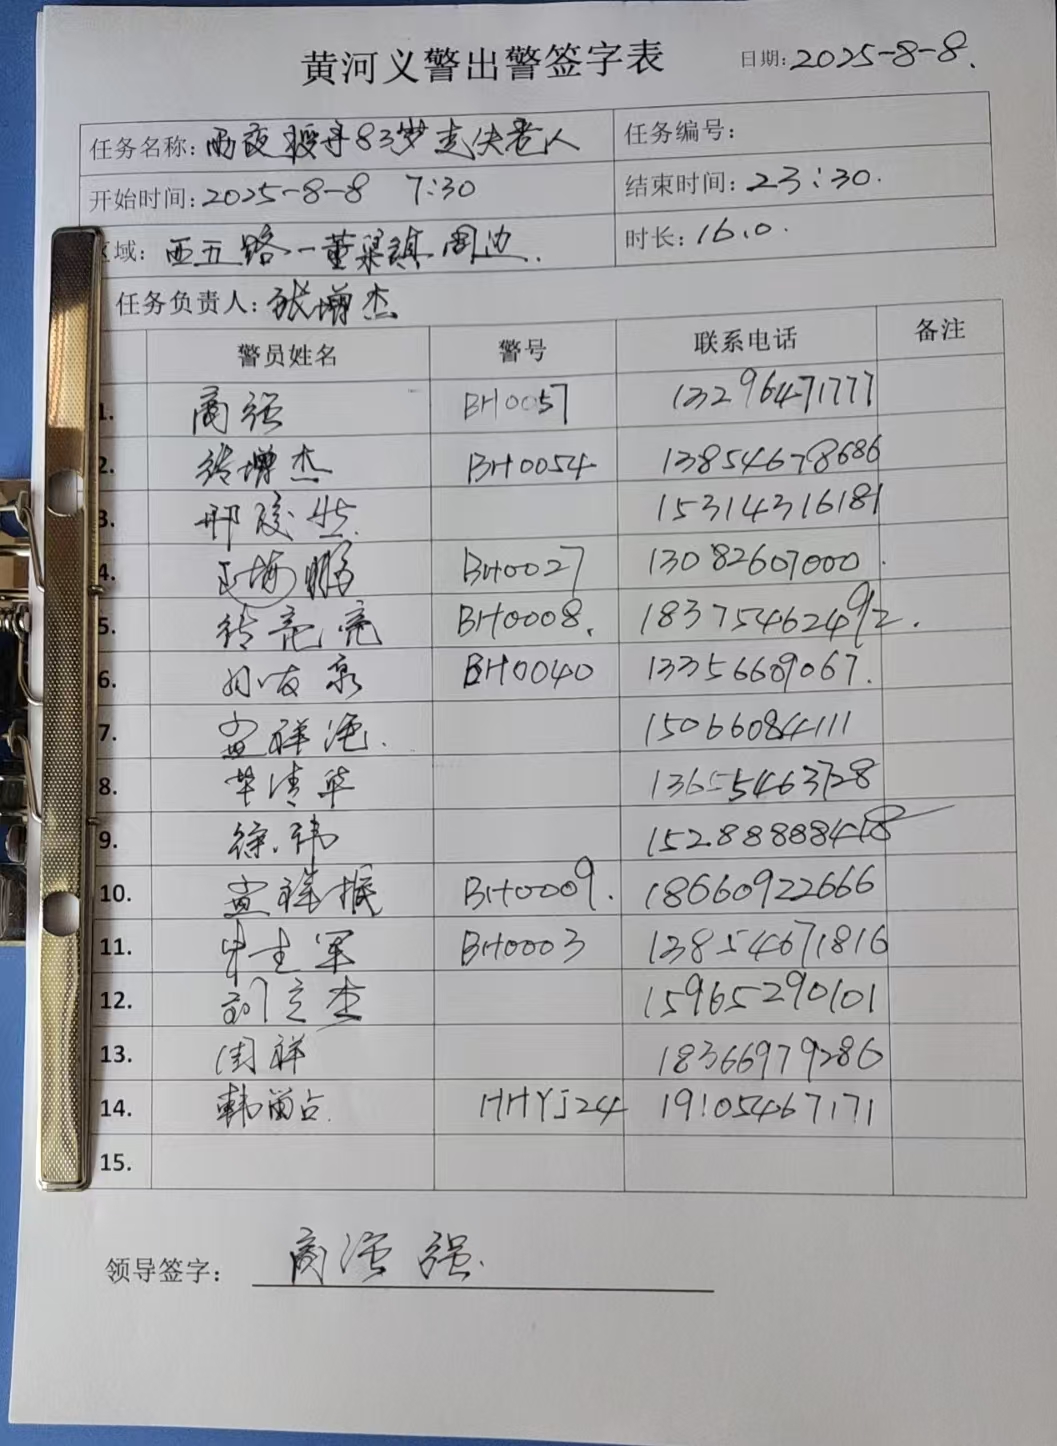 黄河义警出警签字表
日期: 2025-8-8.
任务名称: 雨夜搜寻83岁走失老人
任务编号:
开始时间: 2025-8-8 7:30
结束时间: 23:30.
区域: 西五路一董集镇周边.
时长: 16.0.
任务负责人: 张增杰
警员姓名 警号 联系电话 备注
1. 商强 BH0057 13296471777
2. 张增杰 BH0054 13854678686
3. 邢 15314316181
4. 王海鹏 BH0027 13082607000.
5. 张亮亮 BH0008. 18375462492.
6. 友泉 BH0040 13356609067.
7. 盖祥 15066084111
8. 清华 13655463728
9. 徐伟 15288888418
10. 盖祥振 BH0009. 18660922666
11. 生军 BH0003 13854671816
12. 刘立杰 15965290101
13. 周祥 18366979286
14. 韩 占. HHYJ24 19105467171
15.
领导签字: 商 强.